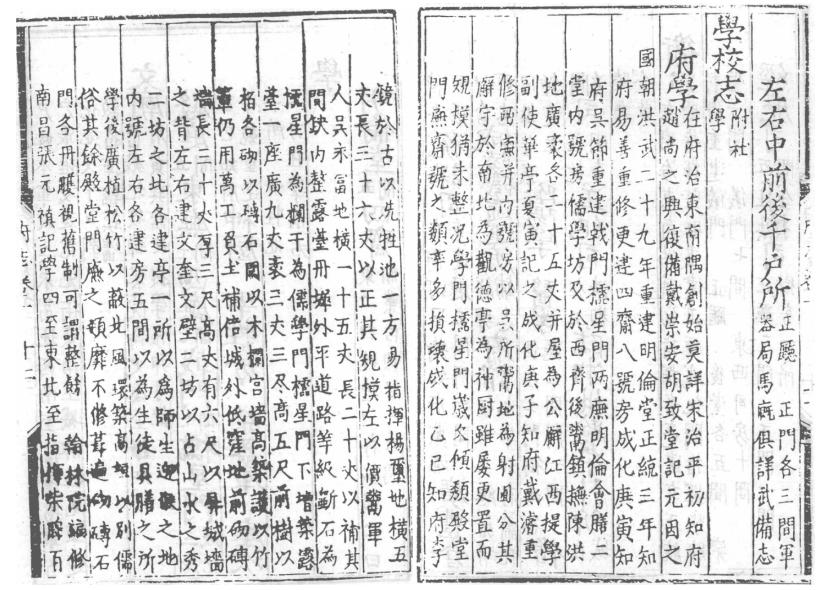 左右中前後千戶所 正廳 正門各三間軍
器局馬廠俱詳武備志
學校志 附社
學
府學 在府治東南隅創始莫詳宋治平初知府
趙尚之興復備戴崇安胡致堂記元因之
國朝洪武二十九年重建明倫堂正統三年知
府易善重修更建四齋八號房成化庚寅知
府吳節重建戟門欞星門兩廡明倫會膳二
堂内號房儒學坊及於西齊後鬻鎮撫陳洪
地廣袤各二十五丈并屋為公廨江西提學
副使華亭夏寅記之成化庚子知府戴濬重
修兩廡并内號房以吳所鬻地為射圃分其
廨宇於南北為觀德亭為神厨雖屢更置而
規模猶未整况學門欞星門歲久傾頽殿堂
門廡齋號之類率多損壞成化乙巳知府李
鏡於古以洗牲池一方易指揮楊璽地橫五
丈長三十六丈以正其規模左以價鬻軍
人吳永富地橫一十五丈長二十丈以補其
間缺内整露臺丹墀外平道路等級斵石為
欞星門為欄干為儒學門欞星門下增築露
臺一座廣九丈袤三丈三尺高五尺前樹以
栢各砌以磚石圍以木欄宮墻高築護以竹
葦仍用萬工負土補信城外低窪地前砌磚
墻長三十丈厚三尺高丈有六尺以屏城墻
之背左右建文奎文璧二坊以占山水之秀
二坊之北各建亭一所以為師生迎 之地
内號左右各建房五間以為生徒具膳之所
學後廣植松竹以蔽北風環築高垣以别儒
俗其餘殿堂門廡之頽靡不修葺遍砌磚石
門各丹雘視舊制可謂整餙 翰林院編修
南昌張元禎記學四至東北至指揮柴 百